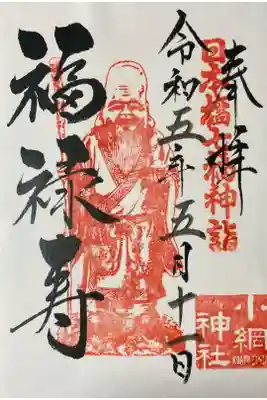 奉拝
日本橋七福神詣
令和五年五月十一日
福禄寿
小網
神社